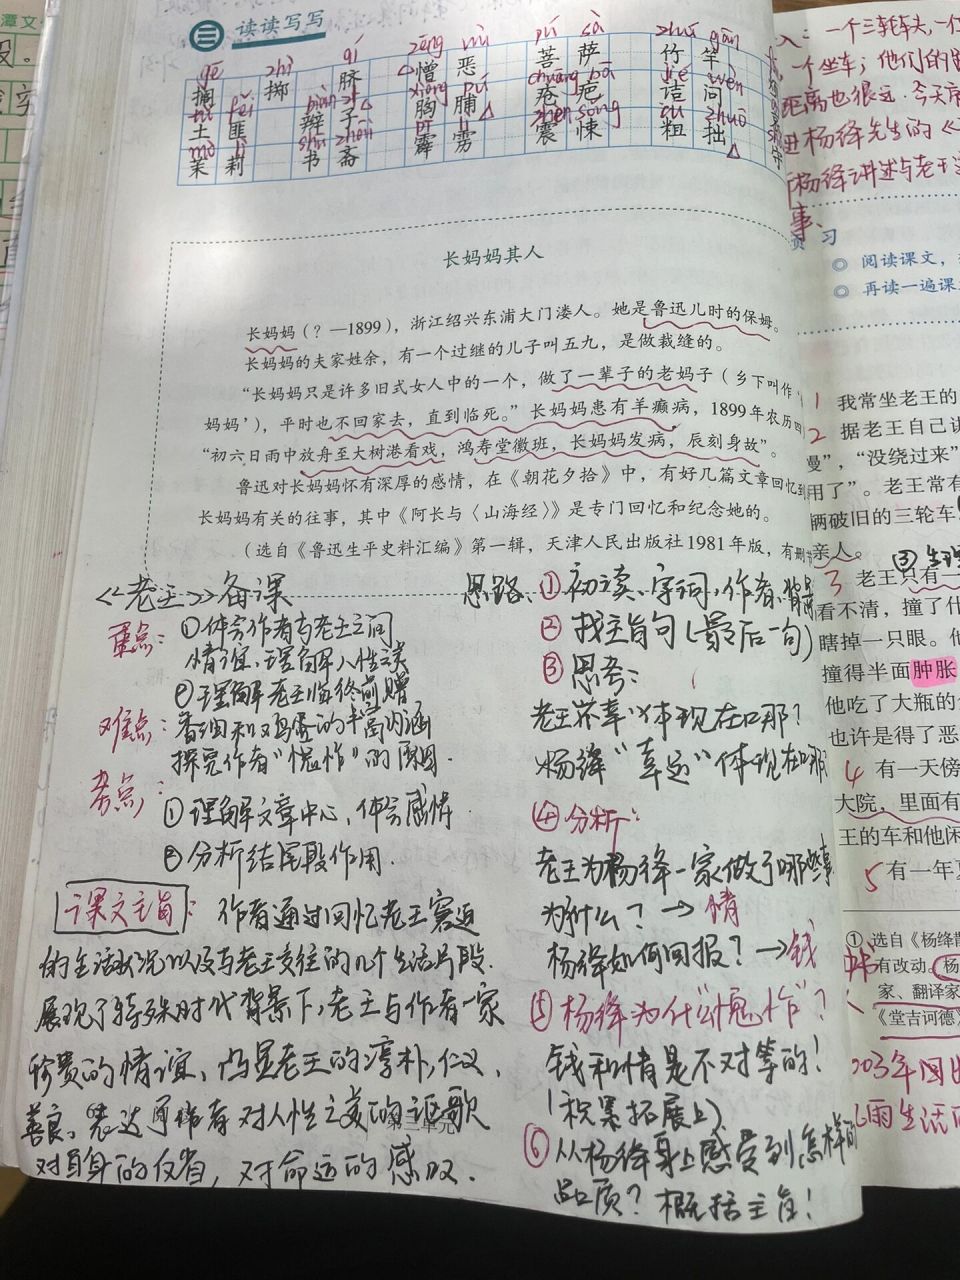 三 读读写写
gē zhì qí zēng wù pú sà zhú gān
掴 掷 脐 憎 恶 菩 萨 竹 竿
tǔ fěi biàn zi xiōng pú chuāng bā jié wèn
土 匪 辫 子 胸 脯 疮 疤 诘 问
mò shū zhāi pī zhèn sǒng cū zhuō
茉 莉 书 斋 霹 雳 震 悚 粗 拙
长妈妈其人
长妈妈（？—1899），浙江绍兴东浦大门溇人。她是鲁迅儿时的保姆。
长妈妈的夫家姓余，有一个过继的儿子叫五九，是做裁缝的。
“长妈妈只是许多旧式女人中的一个，做了一辈子的老妈子（乡下叫作‘
妈妈’），平时也不回家去，直到临死。”长妈妈患有羊癫病，1899年农历四
“初六日雨中放舟至大树港看戏，鸿寿堂徽班，长妈妈发病，辰刻身故”。
鲁迅对长妈妈怀有深厚的感情，在《朝花夕拾》中，有好几篇文章回忆到
长妈妈有关的往事，其中《阿长与〈山海经〉》是专门回忆和纪念她的。
（选自《鲁迅生平史料汇编》第一辑，天津人民出版社1981年版，有删节
《老王》备课
重点：①体会作者与老王之间
情谊，理解人性之美
②理解老王临终前赠
难点：香油和鸡蛋的丰富内涵
探究作者“愧怍”的原因.
考点：
①理解文章中心，体会感情
②分析结尾段作用
课文主旨：作者通过回忆老王窘迫
的生活状况以及与老王交往的几个生活片段.
展现了特殊时代背景下，老王与作者一家
珍贵的情谊、凸显老王的淳朴，仁义、
善良。表达了作者对人性之美的讴歌
对自身的反省，对命运的感叹.
第三单元
思路：①初读、字词，作者、背景
②找主旨句(最后一句)
③思考：
老王不幸“体现在口哪？
杨绛“幸运”体现在哪
④分析：
老王为杨绛一家做了哪些事
为什么？→情
杨绛如何回报？→钱
⑤杨绛为什么“愧怍”？
钱和情是不对等的！
(积累拓展上)
⑥从杨绛身上感受到怎样的
品质？概括主旨！
一个三轮车夫，一位
一个坐车；他们的距
距离也很远.今天
进杨绛先生的《
杨绛讲述与老王
事.
预 习
◎ 阅读课文，
◎ 再读一遍课
1 我常坐老王的
2 据老王自己讲
慢”，“没绕过来”
用了”。老王常有
辆破旧的三轮车
亲人。
3 老王只有一
看不清，撞了什
瞎掉一只眼。他
撞得半面肿胀
他吃了大瓶的
也许是得了恶
4 有一天傍
大院，里面有
王的车和他闲
5 有一年夏
① 选自《杨绛散
有改动。杨
家、翻译家
《堂吉诃德》
2003年
雨生活